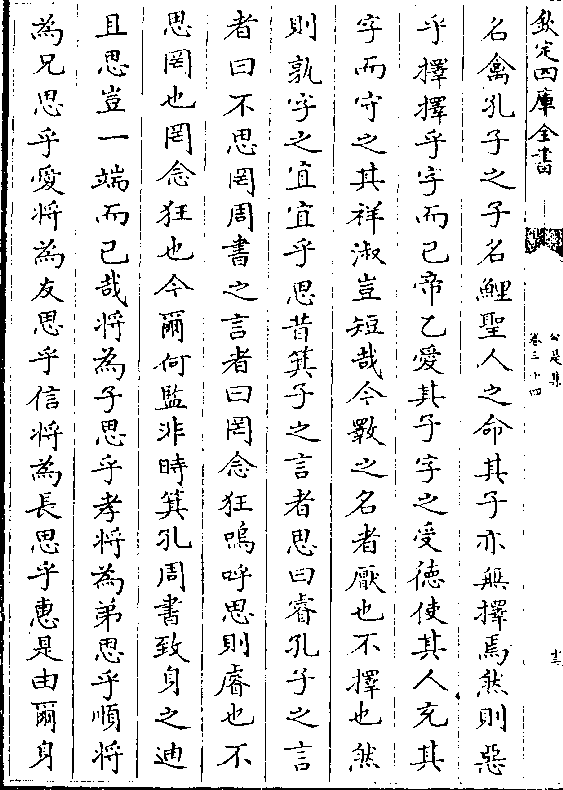 欽定四庫全書
公是集
卷三十四
名禽孔子之子名鯉聖人之命其子亦無擇焉然則惡
乎擇擇乎字而已帝乙愛其子字之受德使其人充其
字而守之其祥淑豈短哉今斁之名者厭也不擇也然
則孰字之宜宜乎思昔箕子之言者思曰睿孔子之言
者曰不思罔周書之言者曰罔念狂嗚呼思則睿也不
思罔也罔念狂也今爾何監非時箕孔周書致身之迪
且思豈一端而已哉將為子思乎孝將為弟思乎順將
為兄思乎愛將為友思乎信將為長思乎惠是由爾身